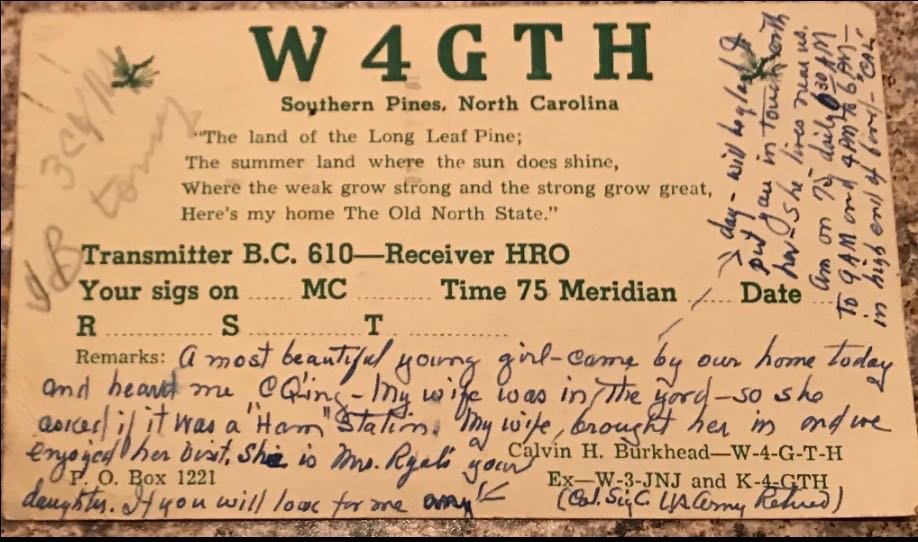 W4GTH
Southern Pines, North Carolina
"The land of the Long Leaf Pine;
The summer land where the sun does shine,
Where the weak grow strong and the strong grow great,
Here's my home The Old North State."
Transmitter B.C. 610—Receiver HRO
Your sigs on ...... MC ............ Time 75 Meridian ...... Date ...
R ............... S ............... T ...............
Remarks: A most beautiful young girl - came by our home today
and heard me CQing - My wife was in the yard - so she
asked if it was a "Ham" Station. My wife brought her in and we
enjoyed her visit. She is Mrs. your
daughter. If you will look for me any
Calvin H. Burkhead—W-4-G-T-H
P. O. Box 1221
Ex—W-3-JNJ and K-4-GTH
(Col. Sig C. US Army Retired)
day - will be glad to
put you in touch with
her - she lives near us.
Am on 75 - daily 6:30 AM
to 9 AM and 4 PM to 6 PM -
in high end of band - "CAL"
tomy